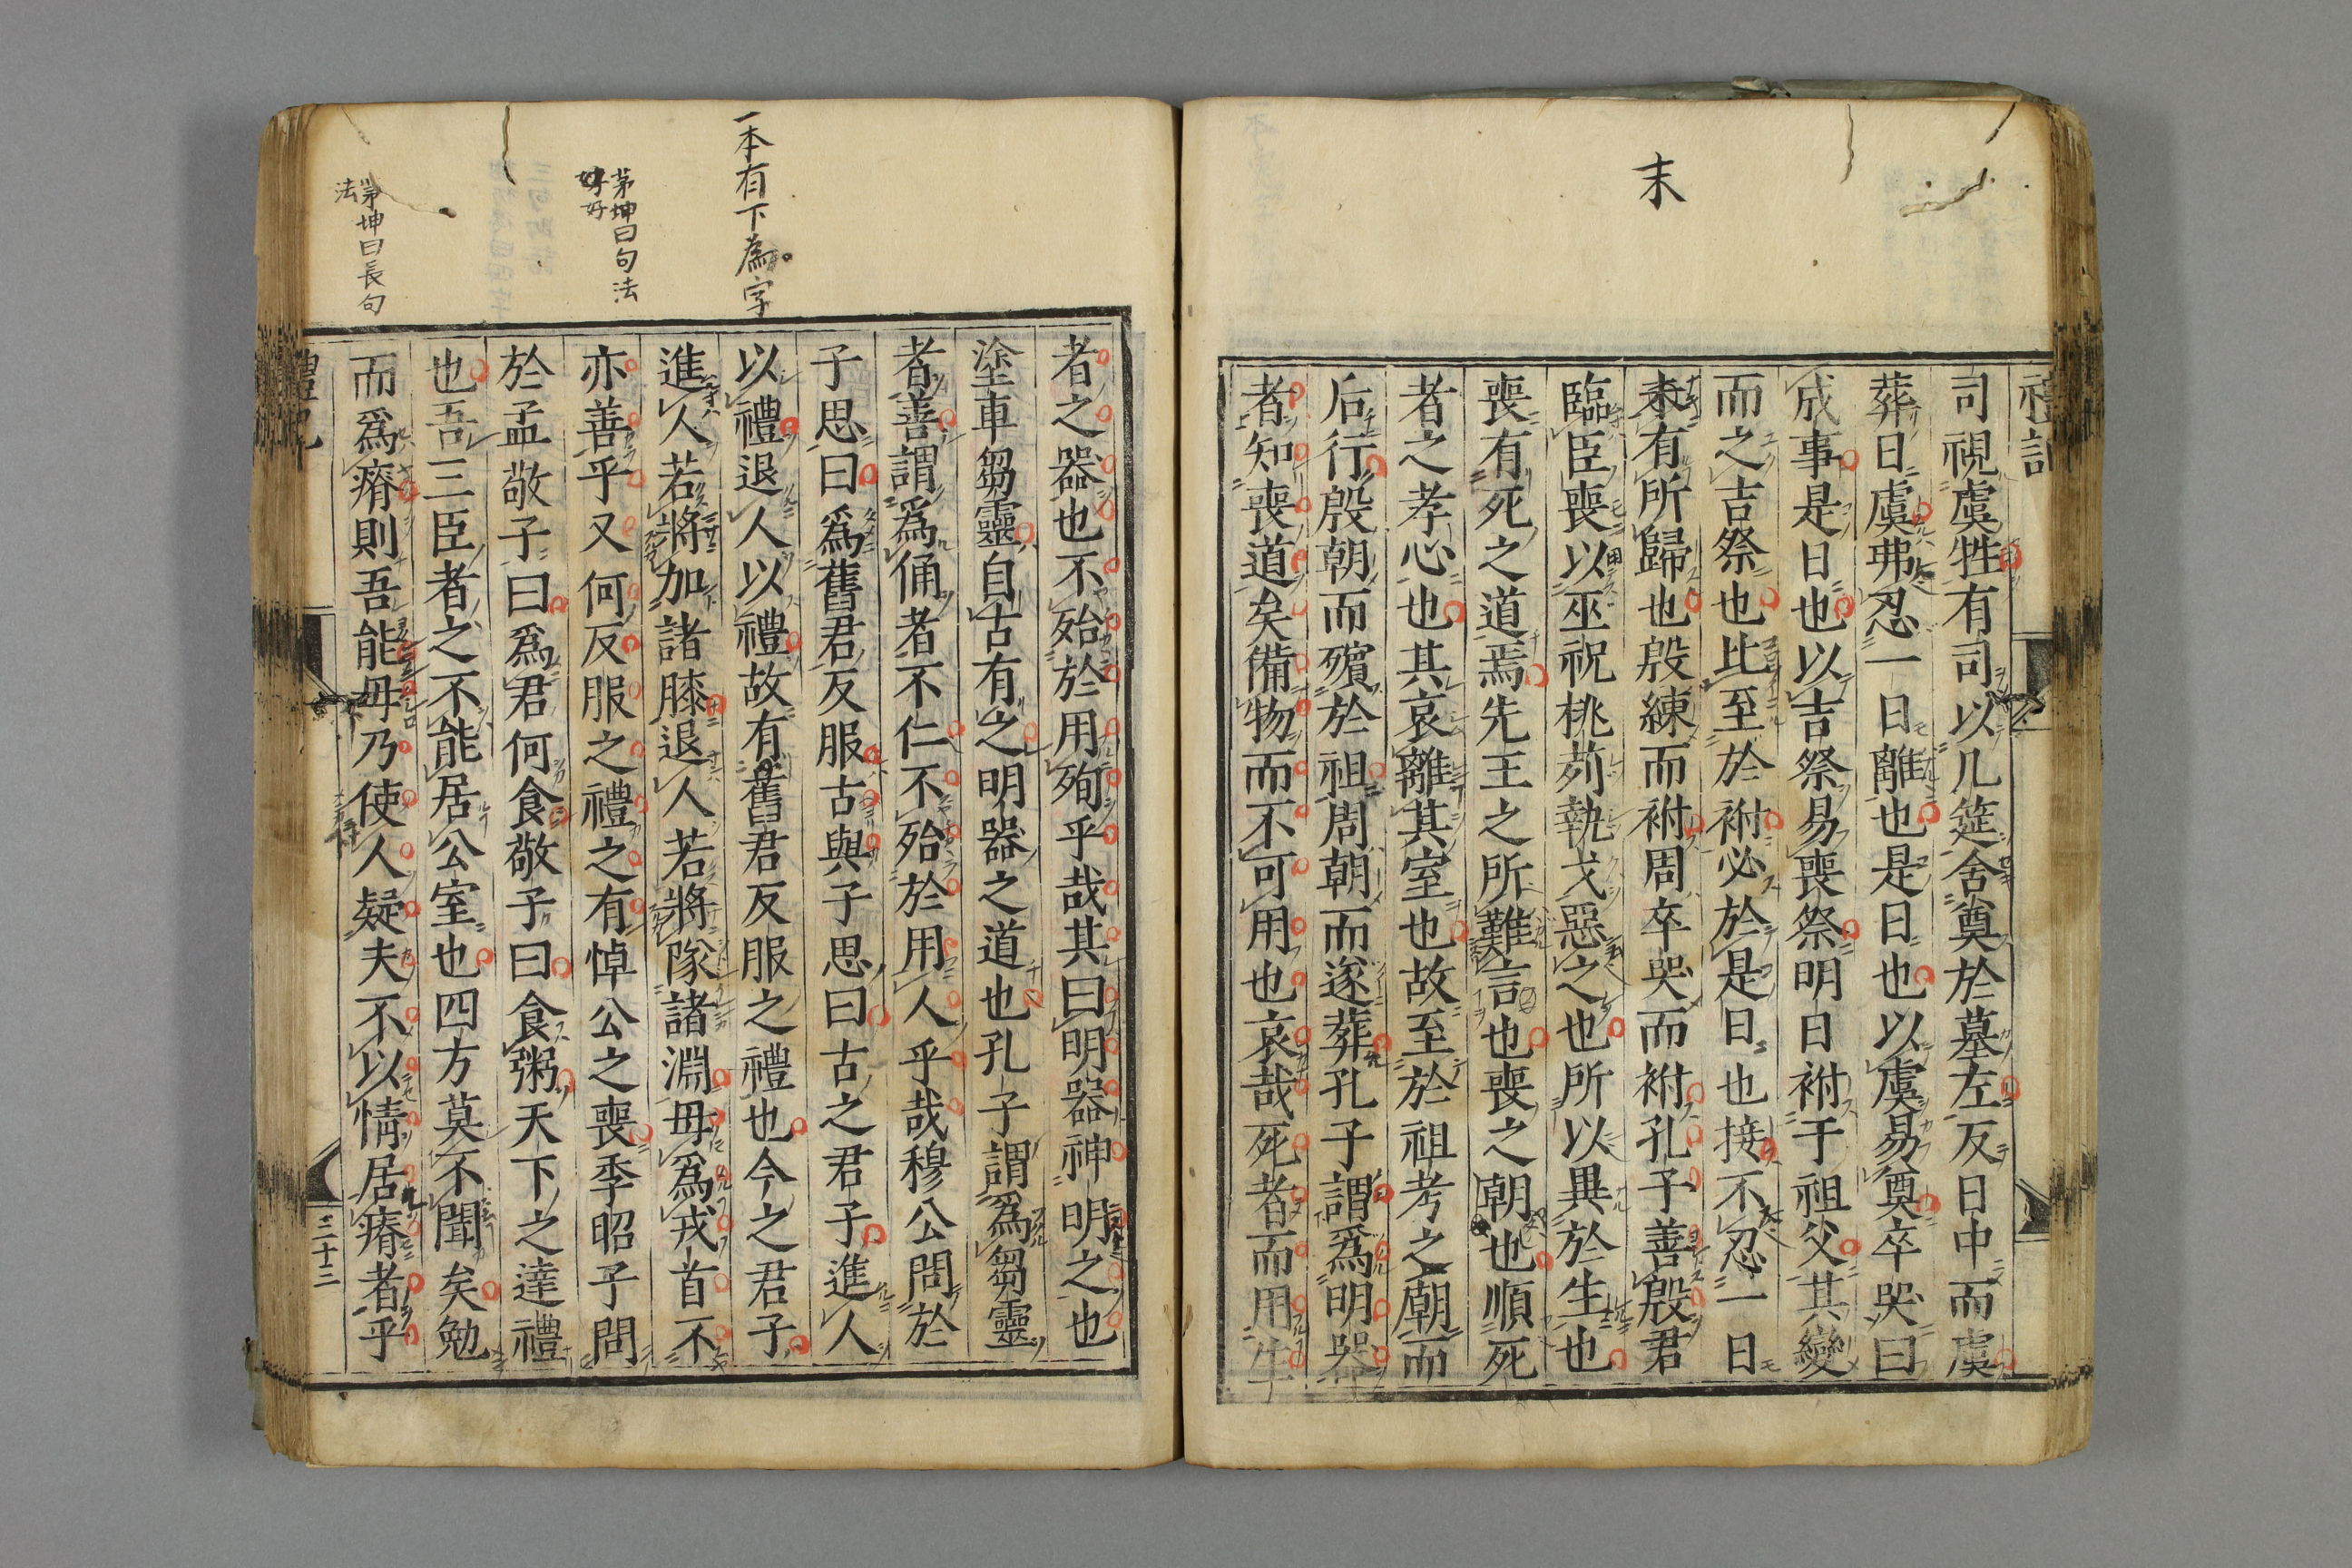 末
禮記
司視虞牲有司以几筵舍奠於墓左反日中而虞
葬日虞弗忍一日離也是日也以虞易奠卒哭曰
成事是日也以吉祭易喪祭明日祔于祖父其變
而之吉祭也比至於祔必於是日也接不忍一日
末有所歸也殷練而祔周卒哭而祔孔子善殷君
臨臣喪以巫祝桃茢執戈惡之也所以異於生也
喪有死之道焉先王之所難言也喪之朝也順死
者之孝心也其哀離其室也故至於祖考之廟而
后行殷朝而殯於祖周朝而遂葬孔子謂爲明器
者知喪道矣備物而不可用也哀哉死者而用生
一本有下為字
茅坤曰句法
好好
茅坤曰長句
法
者之器也不殆於用殉乎哉其曰明器神明之也
塗車芻靈自古有之明器之道也孔子謂爲芻靈
者善謂爲俑者不仁不殆於用人乎哉穆公問於
子思曰爲舊君反服古與子思曰古之君子進人
以禮退人以禮故有舊君反服之禮也今之君子
進人若將加諸膝退人若將隊諸淵毋爲戎首不
亦善乎又何反服之禮之有悼公之喪季昭子問
於孟敬子曰爲君何食敬子曰食粥天下之達禮
也吾三臣者之不能居公室也四方莫不聞矣勉
而爲瘠則吾能毋乃使人疑夫不以情居瘠者乎
禮記
三十三